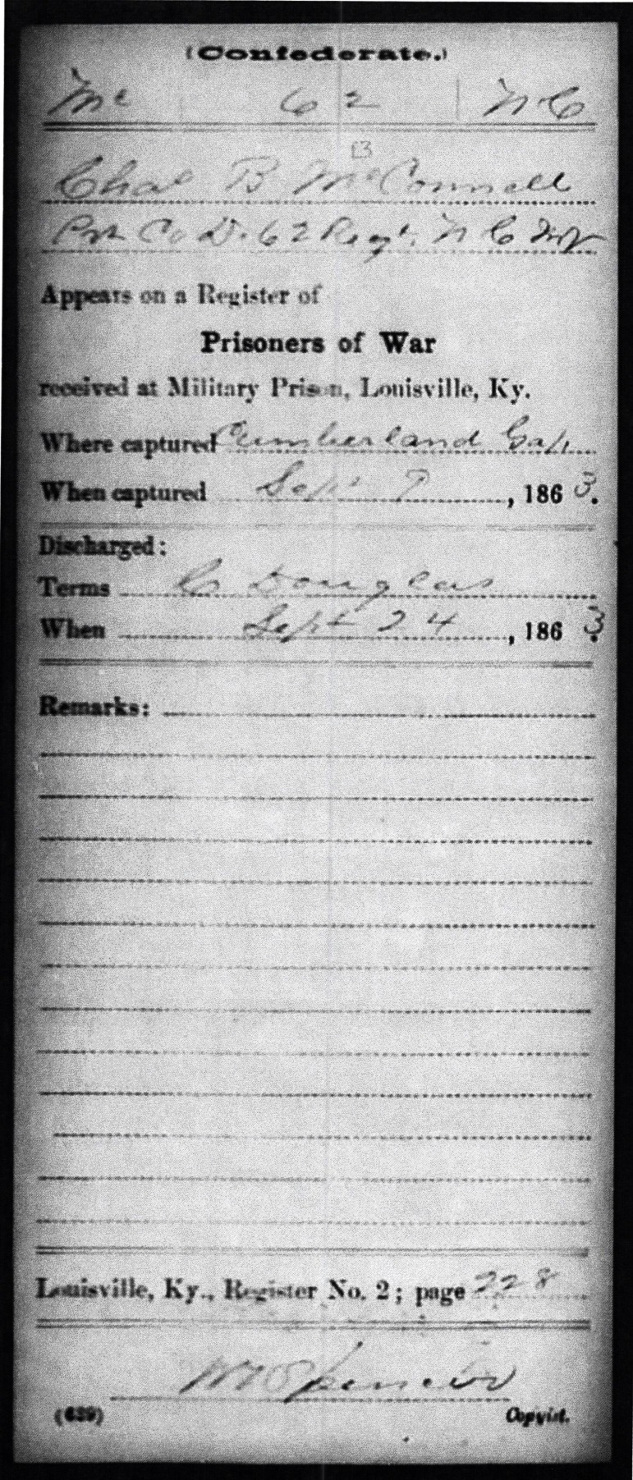 (Confederate.)
Mc | 62 | N C
B
Chas B McConnell
Pvt Co D. 62 Regt. N C
Appears on a Register of
Prisoners of War
received at Military Prison, Louisville, Ky.
Where captured Cumberland Gap
When captured Sept 9, 1863.
Discharged:
Terms C. Douglas
When Sept 24, 1863
Remarks:
Louisville, Ky., Register No. 2; page 228
Spencer
(639) Copyist.